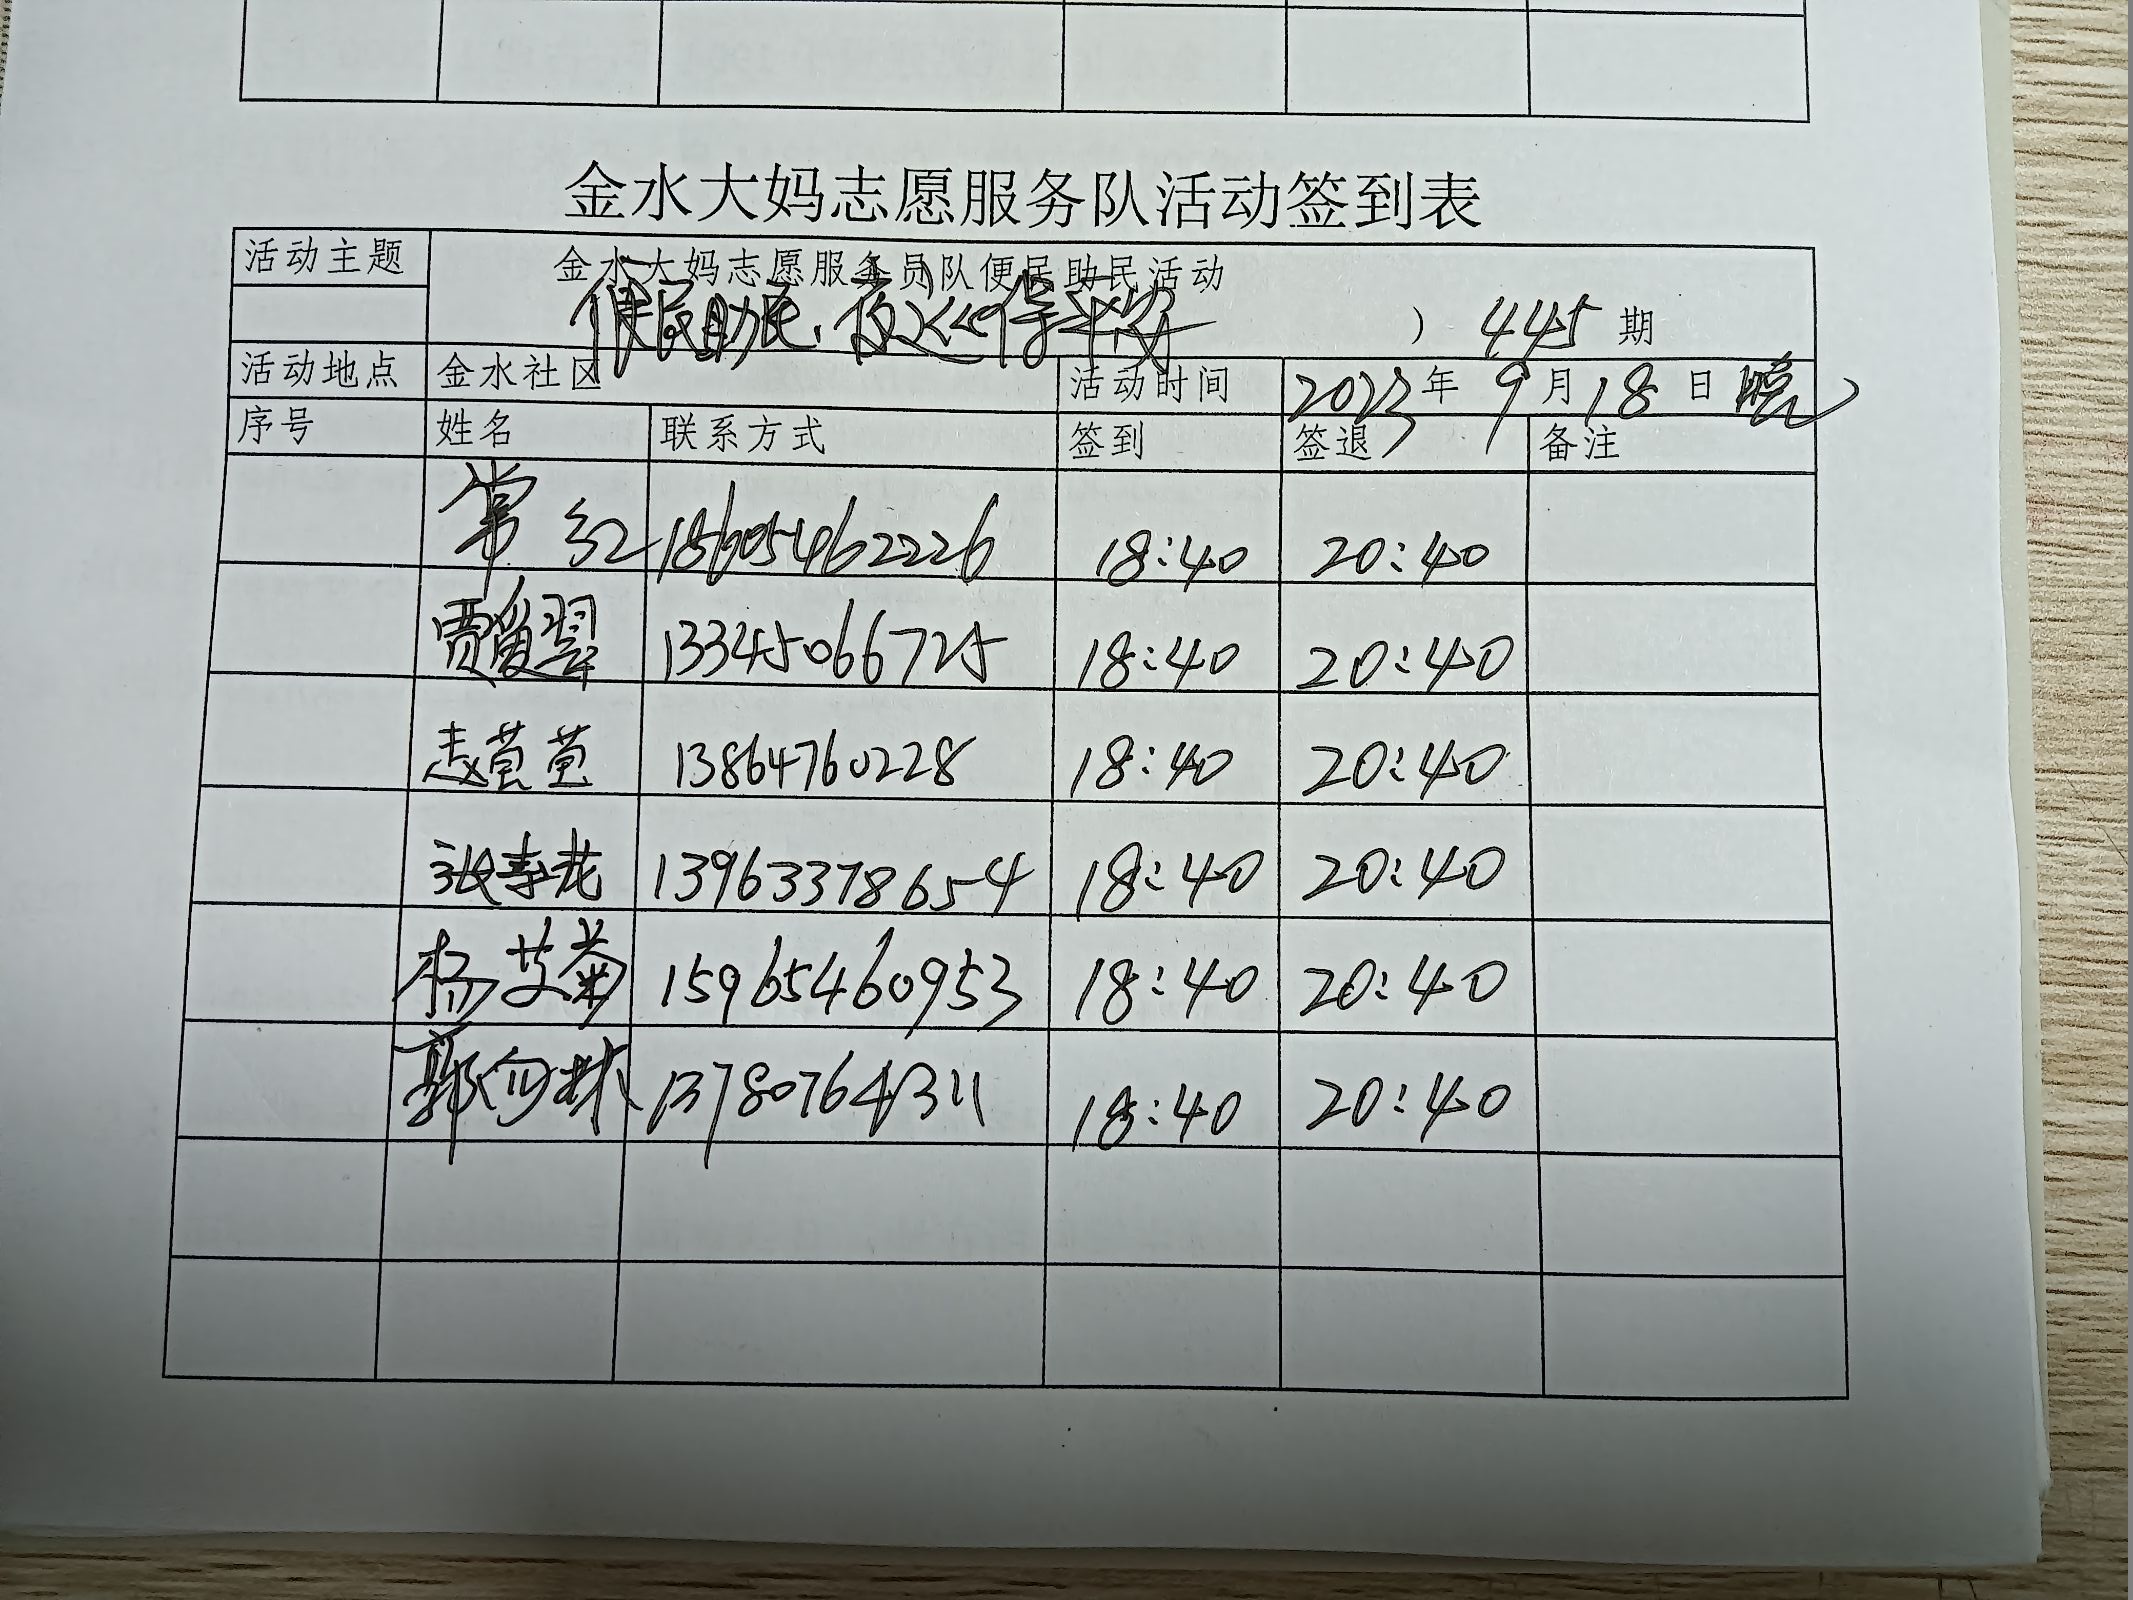 金水大妈志愿服务队活动签到表
活动主题 金水大妈志愿服务员队便民助民活动
便民助民，夜巡保平安 ） 445 期
活动地点 金水社区 活动时间 2023年 9月18日晚
序号 姓名 联系方式 签到 签退 备注
常红 18605462226 18:40 20:40
贾爱翠 13345066725 18:40 20:40
13864760228 18:40 20:40
13963378654 18:40 20:40
杨艾菊 15965460953 18:40 20:40
郭 13780764311 18:40 20:40